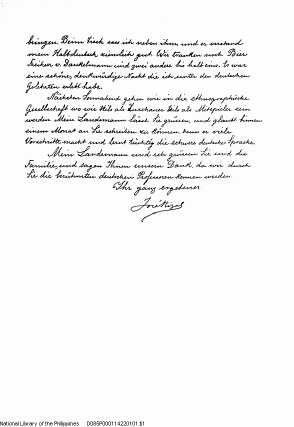 bringen Beim Tisch sass ich neben ihm und er verstand
mein Halbdeutsch ziemlich gut Wir tranken noch Bier
Reiss, v. Danckelmann und zwei andere bis halb eins. Es war
eine schöne, denkwürdige Nacht die ich unter den deutschen
Gelehrten erlebt habe.
Nächsten Sonnabend gehen wir in die ethnographische
Gesellschaft wo wir theils als Zuschauer theils als Mitspieler sein
werden. Mein Landsmann lässt Sie grüssen, und glaubt binnen
einem Monat an Sie schreiben zu können denn er viele
Vorschritte macht und lernt tüchtig die schwere deutsche Sprache.
Mein Landsmann und ich grüssen Sie und die
Familie, und sagen Ihnen unsern Dank, da wir durch
Sie die berühmten deutschen Professoren kennen werden
Ihr ganz ergebener
José Rizal
National Library of the Philippines D086P000114220101 $1